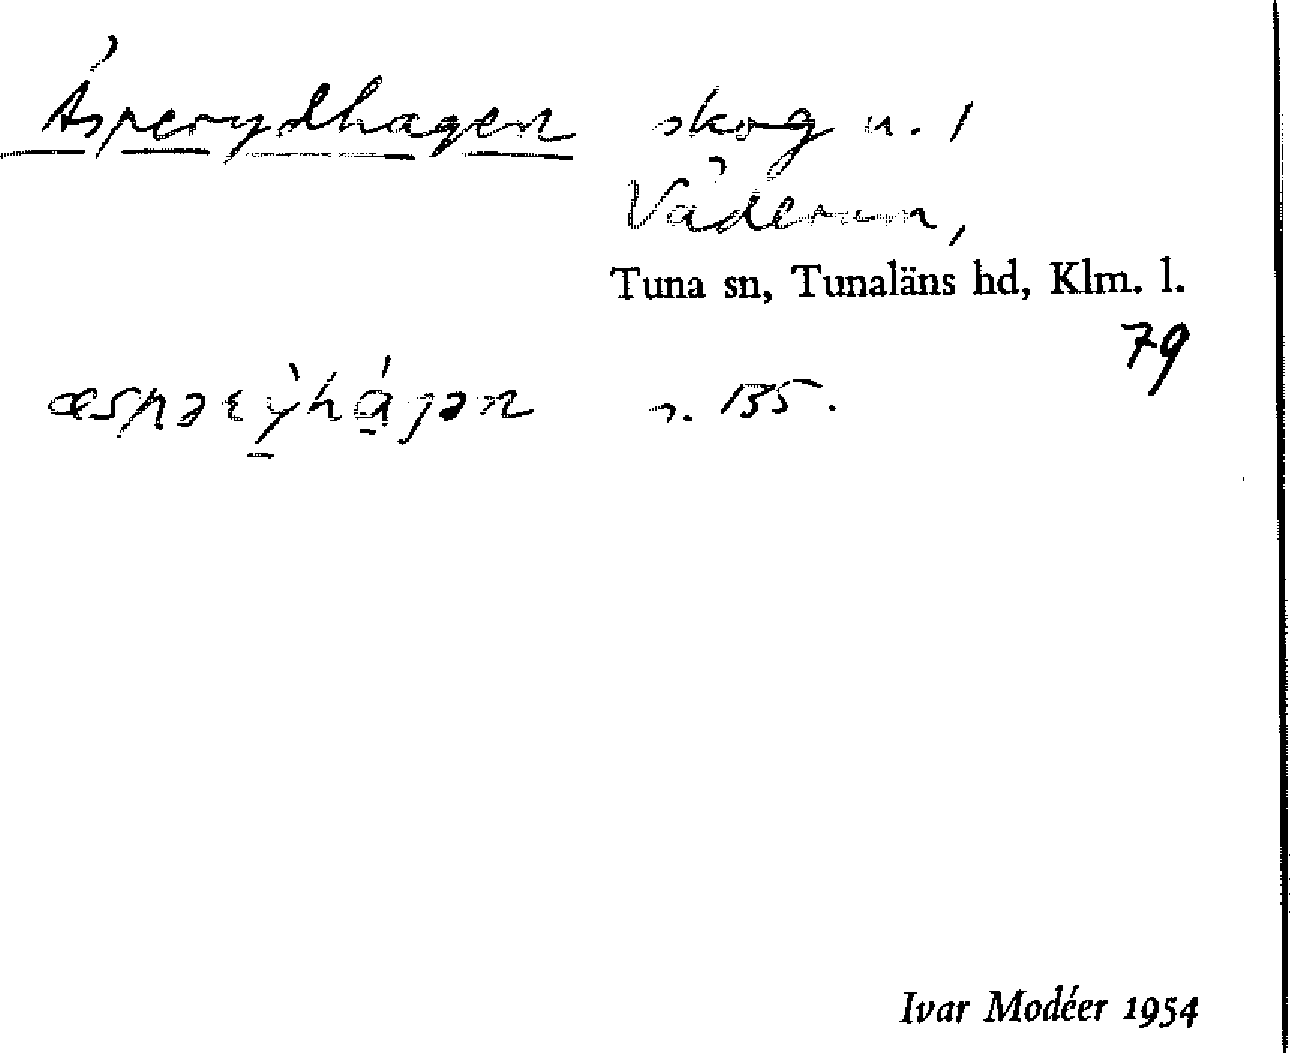 Äsperydhagen skog u. 1
Väderum,
Tuna sn, Tunaläns hd, Klm. l.
79
æspərýhágən n. 135.
Ivar Modéer 1954